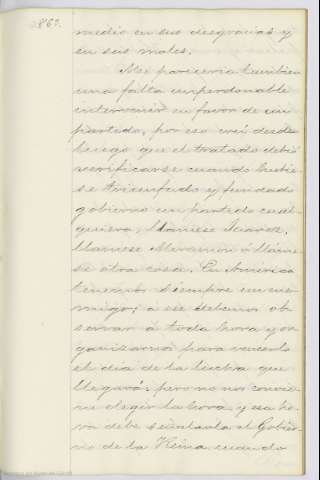 1860.
medio en sus desgracias y
en sus males.
Me pareceria tambien
una falta imperdonable
intervenir en favor de un
partido, por eso creí desde
luego que el tratado debió
verificarse cuando hubie-
se triunfado y fundado
gobierno un partido cual-
quiera, llamese Juarez,
llamese Miramon ó llame
se otra cosa. En America
tenemos siempre un ene-
migo; á ese debemos ob
servar á toda hora y or
ganizarnos para vencerlo
el dia de la lucha que
llegará; pero no nos convie-
ne elegir la hora, y esa ho-
ra debe señalarla el Gobier-
no de la Reina cuando